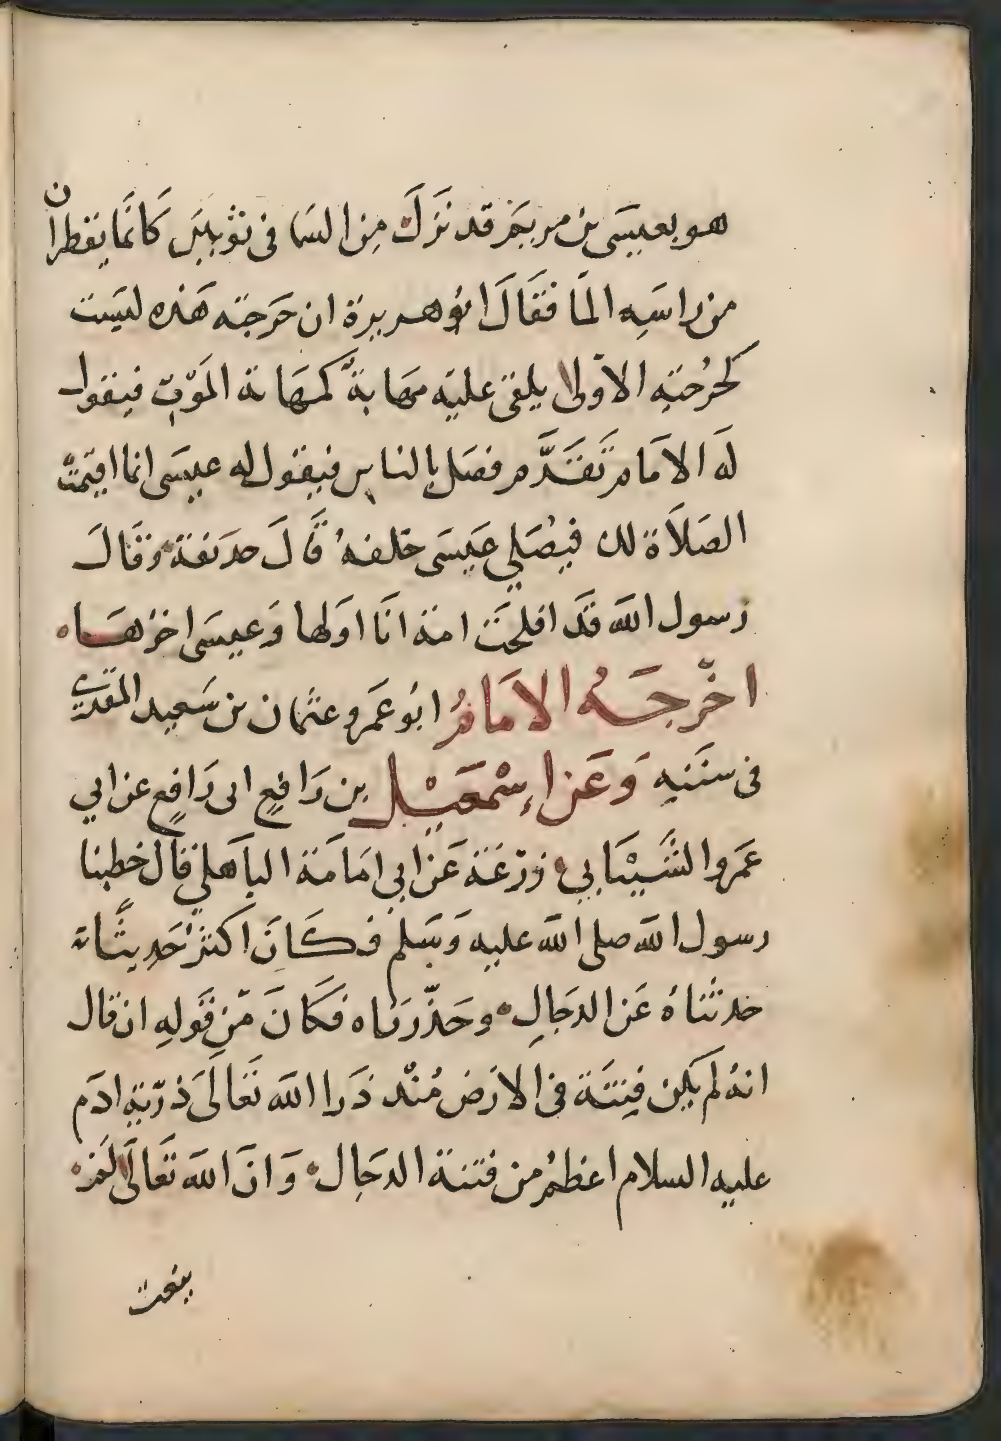 هو بعيسى بن مريم قد نزل من السما فى ثوبين كانما يقطران
من راسه الما فقال ابو هريرة ان خرجته هذه ليست
كخرجته الاولى يلقى عليه مهابة كمهابة الموت فيقول
له الامام تقدم فصل بالناس فيقول له عيسى انما اقيمت
الصلاة لك فيصلي عيسى خلفه قال حذيفة وقال
رسول الله قد افلحت امة انا اولها وعيسى اخرها
اخرجه الامام ابو عمرو عثمان بن سعيد المقري
فى سننه وعن إسمعيل بن رافع ابى رافع عن ابي
عمرو الشيبابي زرعة عن ابي امامة الباهلي قال خطبنا
رسول الله صلى الله عليه وسلم فكان اكثر حديثا
حدثناه عن الدجال وحذرناه فكان من قوله ان قال
انه لم يكن فتنة فى الارض منذ ذرا الله تعالى ذرية ادم
عليه السلام اعظم من فتنة الدجال وان الله تعالى لم
يبعث